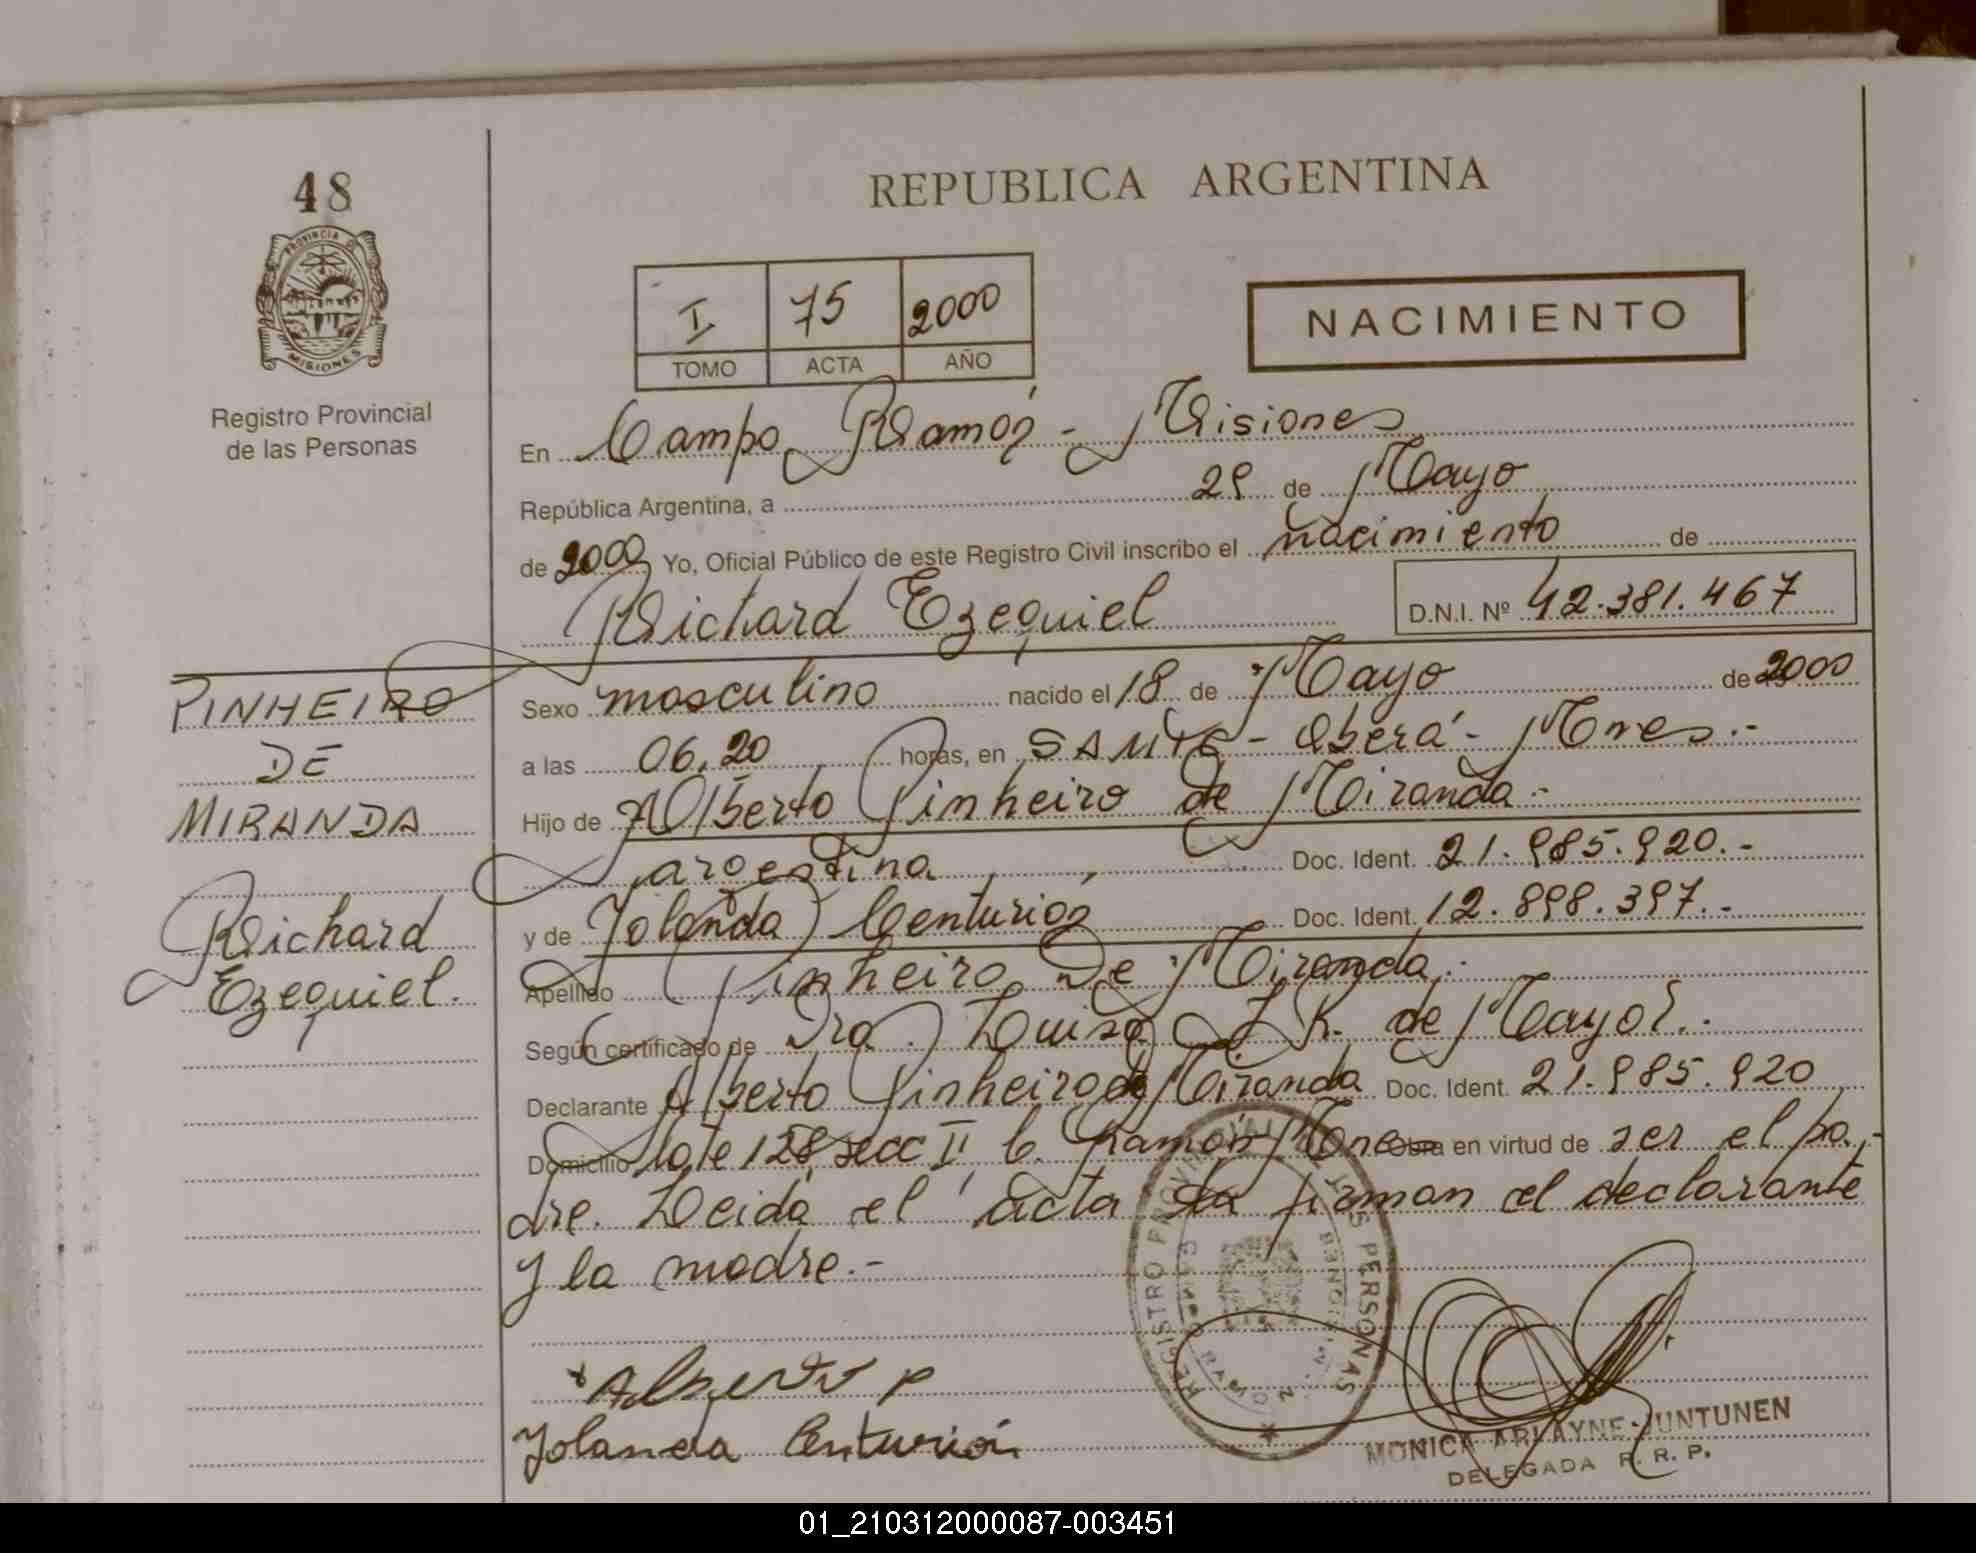 48
PROVINCIA DE
MISIONES
Registro Provincial
de las Personas
REPUBLICA ARGENTINA
I 75 2000
TOMO ACTA AÑO
NACIMIENTO
En Campo Ramón - Misiones
República Argentina, a 29 de Mayo
de 2000 Yo, Oficial Público de este Registro Civil inscribo el nacimiento de
Richard Ezequiel D.N.I. Nº 42.381.467
PINHEIRO
DE
MIRANDA
Richard
Ezequiel.
Sexo masculino nacido el 18 de Mayo de 2000
a las 06,20 horas, en SAMIC - Oberá - Mnes.-
Hijo de Alberto Pinheiro de Miranda.-
argentina Doc. Ident. 21.985.920.-
y de Yolanda Centurión Doc. Ident. 12.898.397.-
Apellido Pinheiro De Miranda.-
Según certificado de Dra. Luisa K. de Mayol.-
Declarante Alberto Pinheiro de Miranda Doc. Ident. 21.985.920
Domicilio lote 128 secc II C. Ramón Mnes Obra en virtud de ser el pa-
dre. Leida el acta la firman el declarante
y la madre.-
Alberto P
Yolanda Centurión
REGISTRO PROVINCIAL DE LAS PERSONAS
CAMPO RAMON
MISIONES
MONICA ARLAYNE JUNTUNEN
DELEGADA R. R. P.
01_210312000087-003451